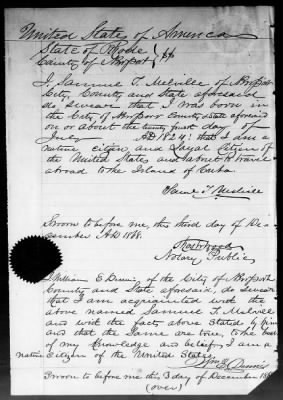 United State of America
State of Rhode
County of Newport } ss
I, Samuel T. Melville of Newport
City, County and State aforesaid
do swear that I was born in
the City of Newport County state aforesaid
on or about the twenty first day of
July AD 1824: that I am a
native citizen and Loyal Citizen of
the United States and about to travel
abroad to the Island of Cuba.
Saml T. Melville
Sworn to before me, this third day of De-
cember AD 188
Notary Public
I William E. Dennis, of the City of Newport
County and State aforesaid, do swear
that I am acquainted with the
above named Samuel T. Melville
and with the facts above stated by him
and that the same are true, to the best
of my knowledge and belief, I am a
native citizen of the United States
Wm E. Dennis
Sworn to before me this 3 day of December 188
(over)